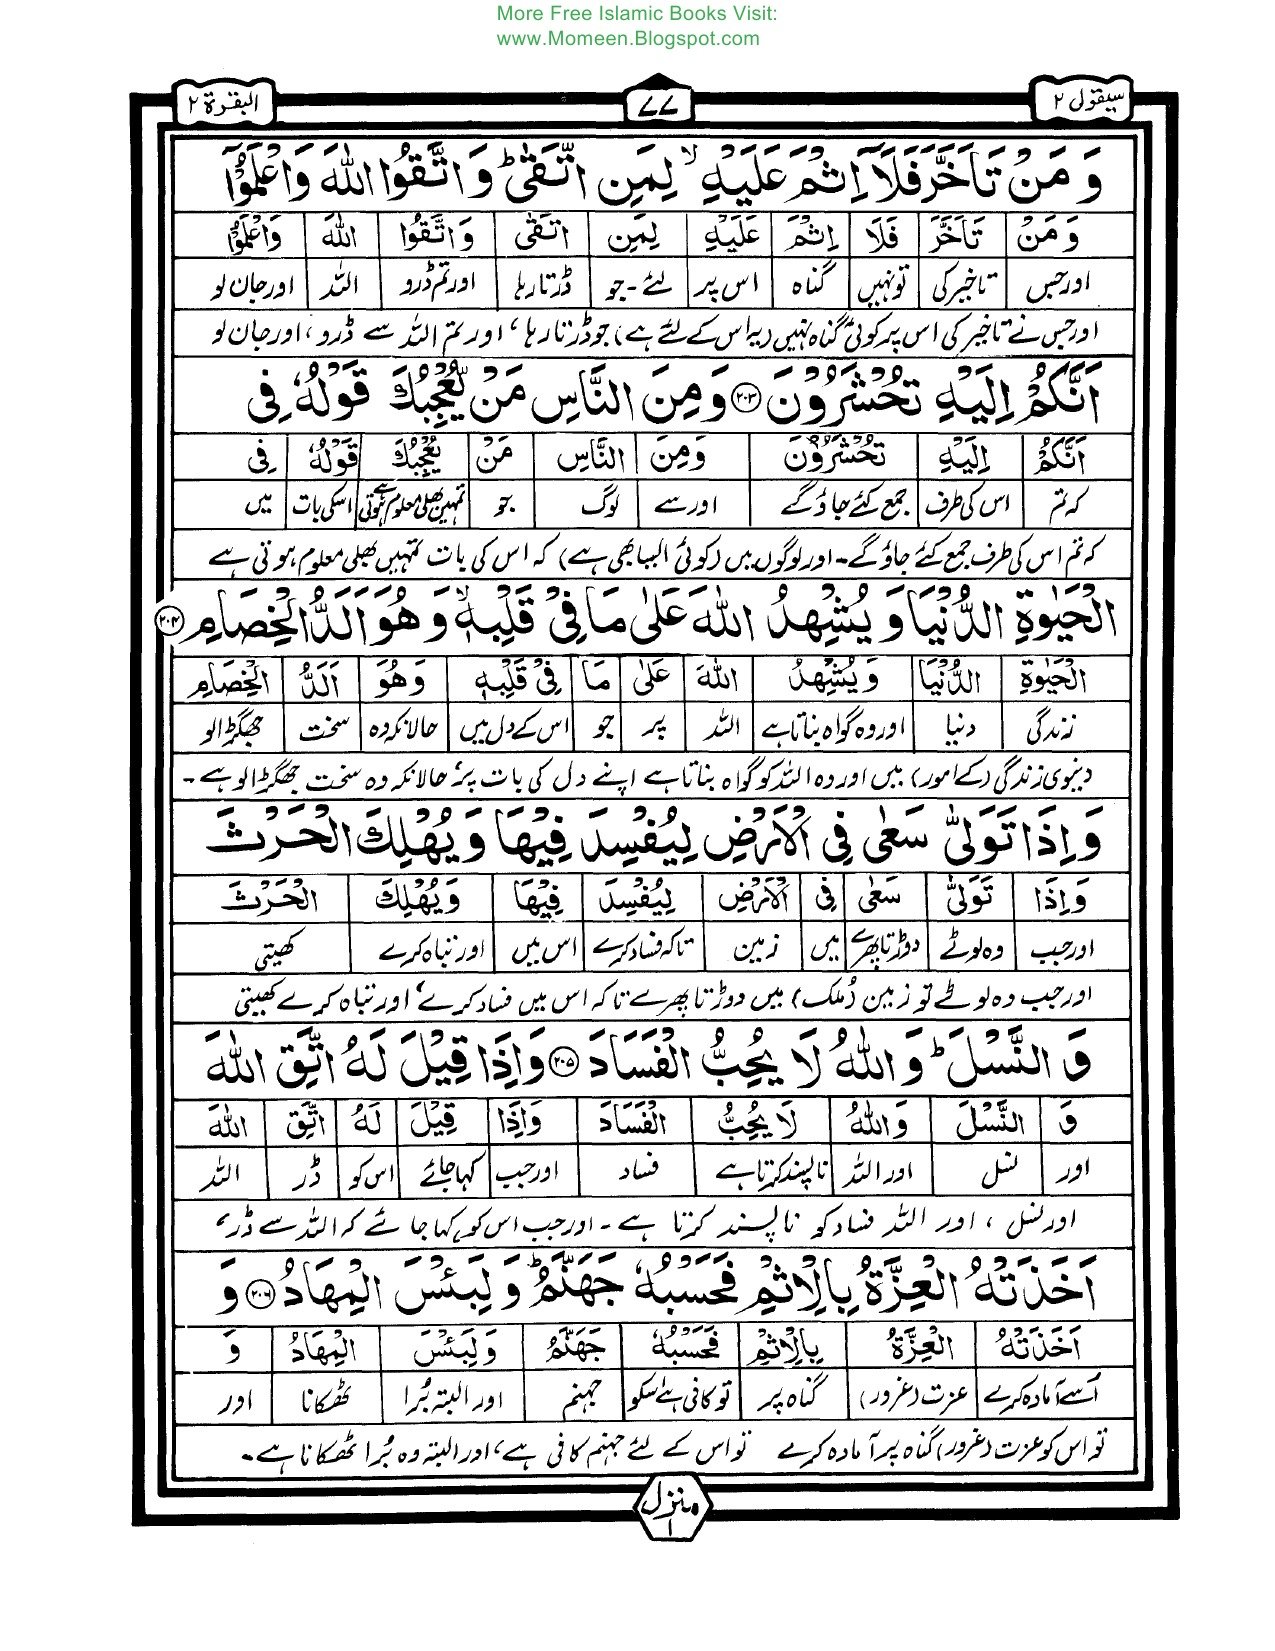 More Free Islamic Books Visit:
www.Momeen.Blogspot.com
سیقول ۲
۷۷
البقرة ۲
وَمَنْ تَاَخَّرَ فَلَآ اِثْمَ عَلَيْهِ ۙ لِمَنِ اتَّقٰى ؕ وَاتَّقُوا اللّٰهَ وَاعْلَمُوْٓا
وَمَنْ تَاَخَّرَ فَلَا اِثْمَ عَلَيْهِ لِمَنِ اتَّقٰى وَاتَّقُوا اللّٰهَ وَاعْلَمُوْٓا
اور جس تاخیر کی تو نہیں گناہ اس پر لئے۔ جو ڈرتا رہا اور تم ڈرو اللہ اور جان لو
اور جس نے تاخیر کی اس پر کوئی گناہ نہیں (یہ اس کے لئے ہے) جو ڈرتا رہا، اور تم اللہ سے ڈرو، اور جان لو
اَنَّكُمْ اِلَيْهِ تُحْشَرُوْنَ ۲۰۳ وَمِنَ النَّاسِ مَنْ يُّعْجِبُكَ قَوْلُهٗ فِى
اَنَّكُمْ اِلَيْهِ تُحْشَرُوْنَ وَمِنَ النَّاسِ مَنْ يُعْجِبُكَ قَوْلُهٗ فِى
کہ تم اس کی طرف جمع کئے جاؤگے اور سے لوگ جو تمہیں بھلی معلوم ہوتی ہے اسکی بات میں
کہ تم اس کی طرف جمع کئے جاؤگے۔ اور لوگوں میں (کوئی ایسا بھی ہے) کہ اس کی بات تمہیں بھلی معلوم ہوتی ہے
الْحَيٰوةِ الدُّنْيَا وَيُشْهِدُ اللّٰهَ عَلٰى مَا فِىْ قَلْبِهٖ ۙ وَهُوَ اَلَدُّ الْخِصَامِ ۲۰۴
الْحَيٰوةِ الدُّنْيَا وَيُشْهِدُ اللّٰهَ عَلٰى مَا فِىْ قَلْبِهٖ وَهُوَ اَلَدُّ الْخِصَامِ
زندگی دنیا اور وہ گواہ بناتا ہے اللہ پر جو اس کے دل میں حالانکہ وہ سخت جھگڑالو
دنیوی زندگی (کے امور) میں اور وہ اللہ کو گواہ بناتا ہے اپنے دل کی بات پر، حالانکہ وہ سخت جھگڑالو ہے۔
وَاِذَا تَوَلّٰى سَعٰى فِى الْاَرْضِ لِيُفْسِدَ فِيْهَا وَيُهْلِكَ الْحَرْثَ
وَاِذَا تَوَلّٰى سَعٰى فِى الْاَرْضِ لِيُفْسِدَ فِيْهَا وَيُهْلِكَ الْحَرْثَ
اور جب وہ لوٹے دوڑتا پھرے میں زمین تاکہ فساد کرے اس میں اور تباہ کرے کھیتی
اور جب وہ لوٹے تو زمین (ملک) میں دوڑتا پھرے تاکہ اس میں فساد کرے، اور تباہ کرے کھیتی
وَ النَّسْلَ ؕ وَاللّٰهُ لَا يُحِبُّ الْفَسَادَ ۲۰۵ وَاِذَا قِيْلَ لَهُ اتَّقِ اللّٰهَ
وَ النَّسْلَ وَاللّٰهُ لَا يُحِبُّ الْفَسَادَ وَاِذَا قِيْلَ لَهُ اتَّقِ اللّٰهَ
اور نسل اور اللہ ناپسند کرتا ہے فساد اور جب کہا جائے اس کو ڈر اللہ
اور نسل، اور اللہ فساد کو ناپسند کرتا ہے۔ اور جب اس کو کہا جائے کہ اللہ سے ڈر،
اَخَذَتْهُ الْعِزَّةُ بِالْاِثْمِ فَحَسْبُهٗ جَهَنَّمُ ؕ وَلَبِئْسَ الْمِهَادُ ۲۰۶ وَ
اَخَذَتْهُ الْعِزَّةُ بِالْاِثْمِ فَحَسْبُهٗ جَهَنَّمُ وَلَبِئْسَ الْمِهَادُ وَ
اُسے آمادہ کرے عزت (غرور) گناہ پر تو کافی ہے اسکو جہنم اور البتہ بُرا ٹھکانا اور
تو اس کو عزت (غرور) گناہ پر آمادہ کرے تو اس کے لئے جہنم کافی ہے، اور البتہ وہ بُرا ٹھکانا ہے۔
منزل
۱